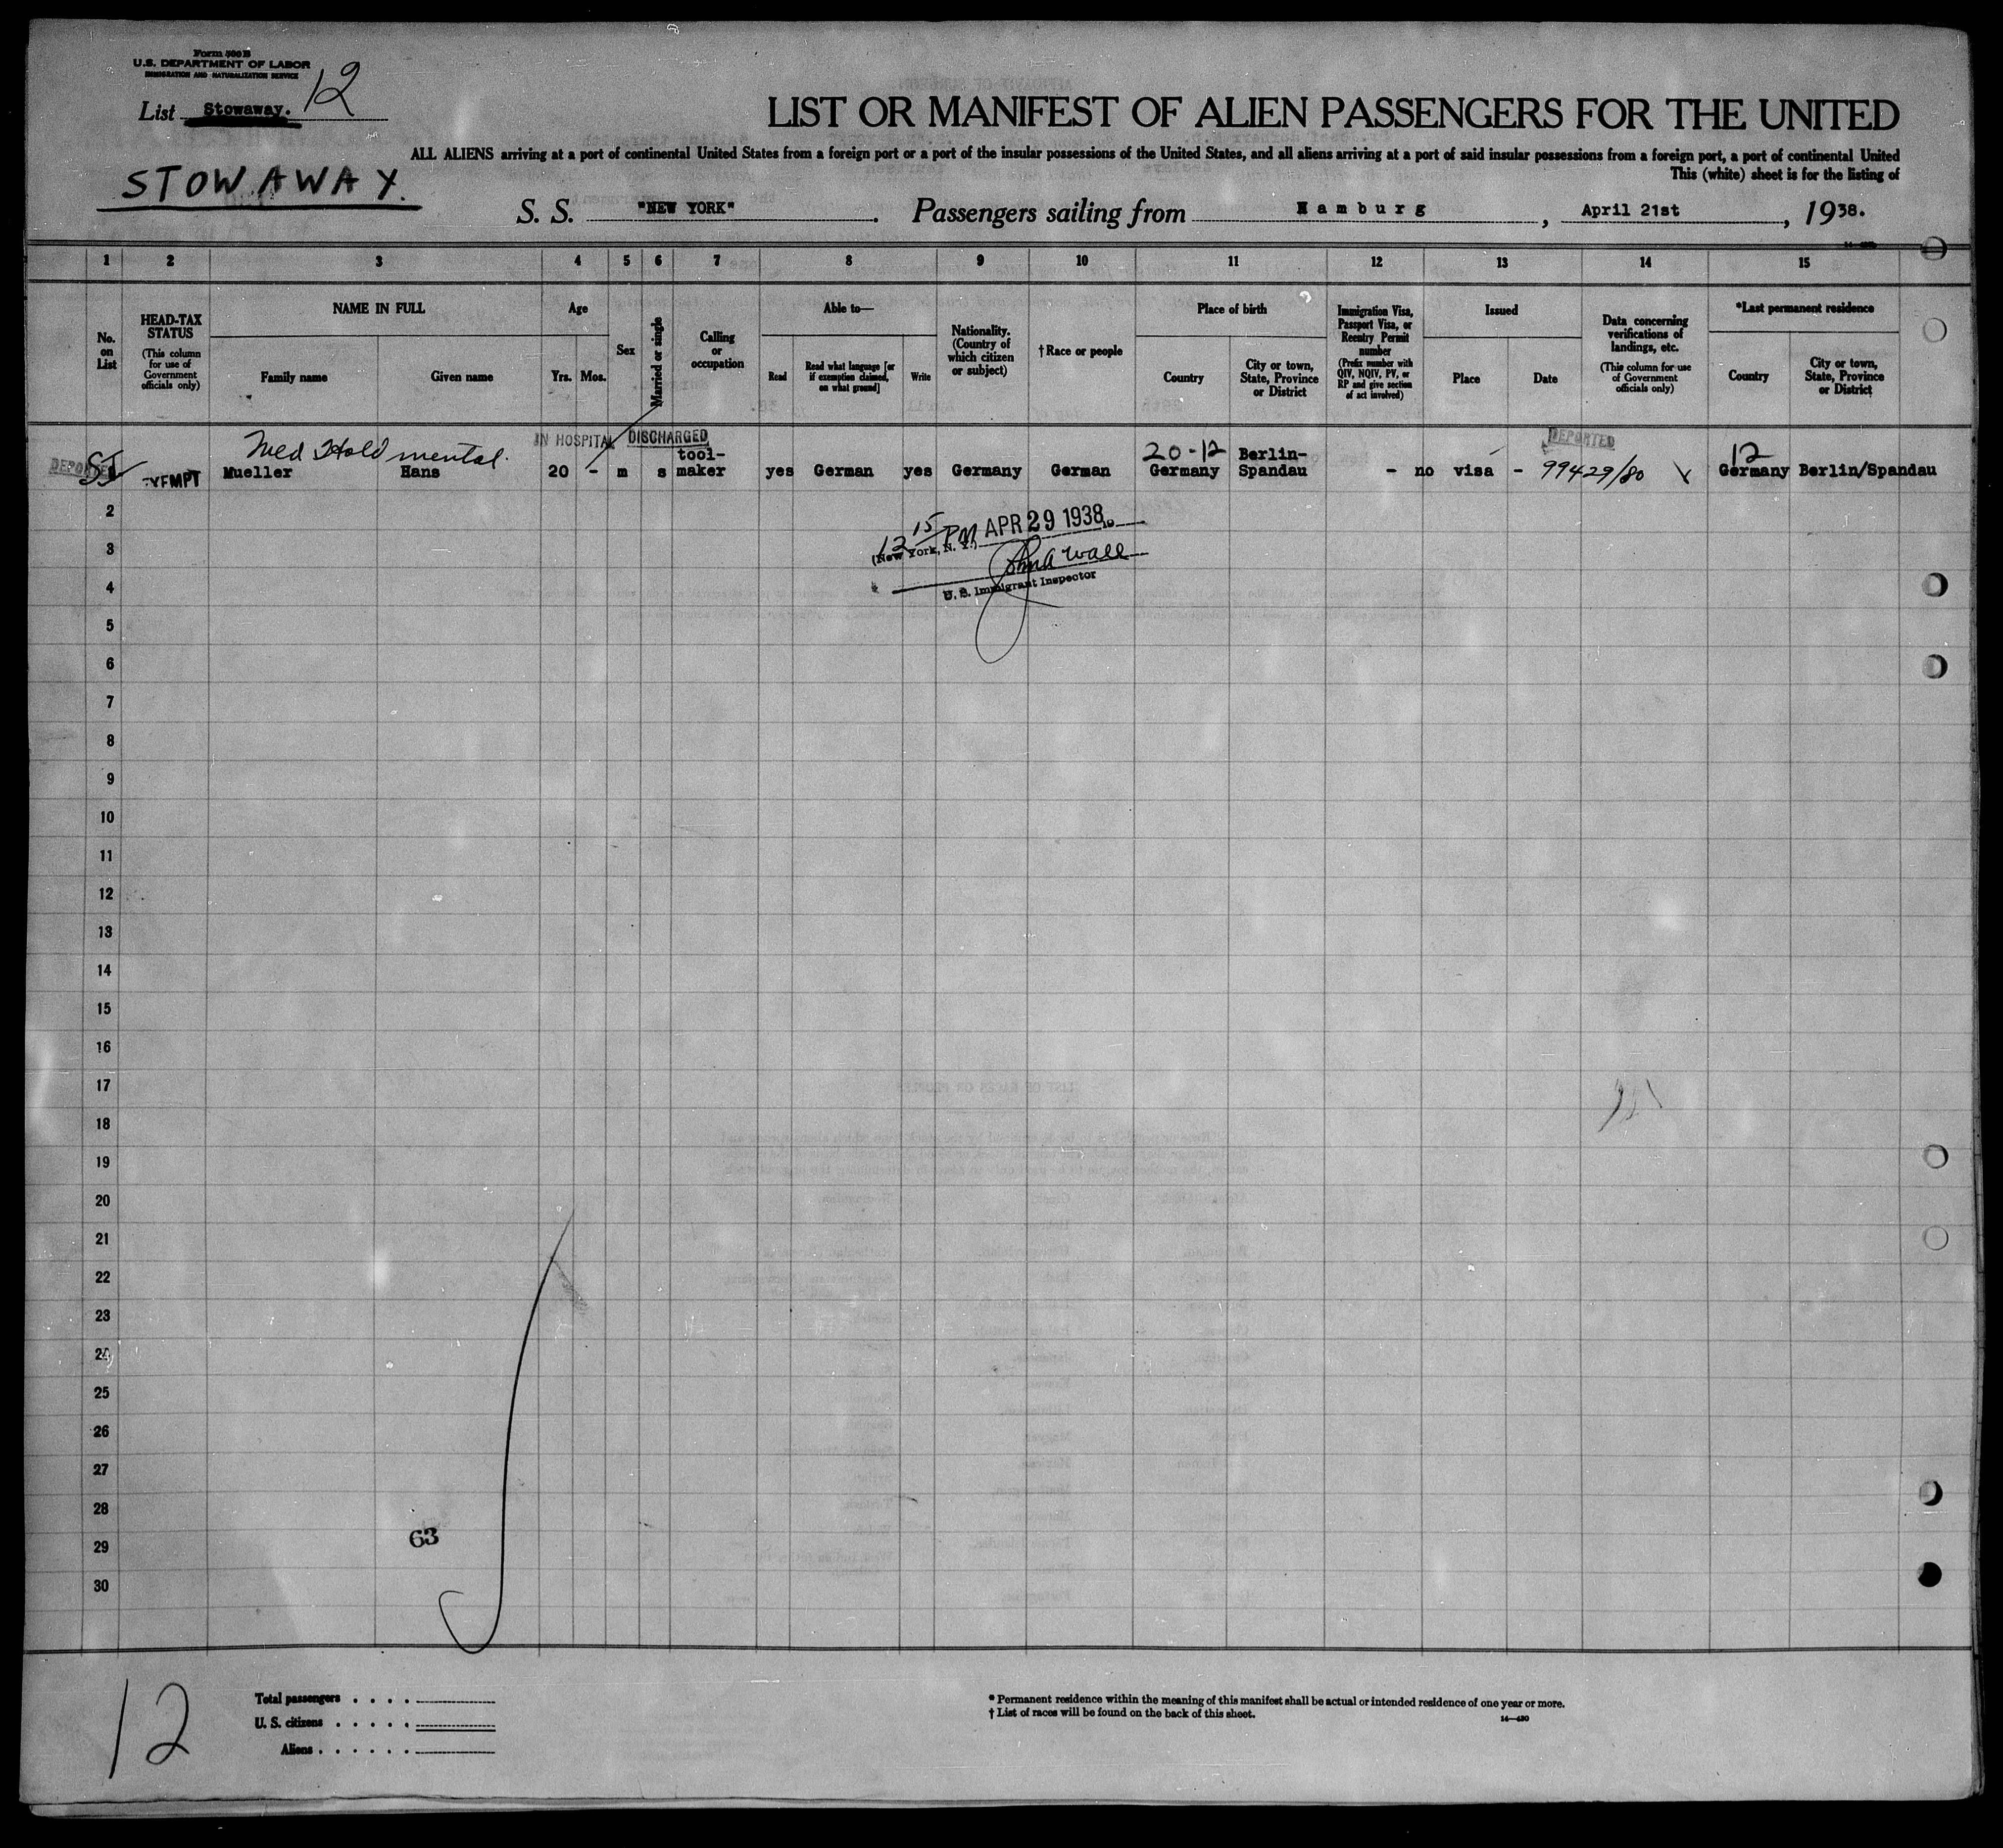 Form 500 B
U.S. DEPARTMENT OF LABOR
IMMIGRATION AND NATURALIZATION SERVICE
List Stowaway. 12
STOWAWAY.
LIST OR MANIFEST OF ALIEN PASSENGERS FOR THE UNITED
ALL ALIENS arriving at a port of continental United States from a foreign port or a port of the insular possessions of the United States, and all aliens arriving at a port of said insular possessions from a foreign port, a port of continental United
This (white) sheet is for the listing of
S. S. "NEW YORK". Passengers sailing from Hamburg, April 21st, 1938.
1 2 3 4 5 6 7 8 9 10 11 12 13 14 15
No. on List
HEAD-TAX STATUS (This column for use of Government officials only)
NAME IN FULL
Family name
Given name
Age
Yrs. Mos.
Sex
Married or single
Calling or occupation
Able to—
Read
Read what language [or if exemption claimed, on what ground]
Write
Nationality. (Country of which citizen or subject)
†Race or people
Place of birth
Country
City or town, State, Province or District
Immigration Visa, Passport Visa, or Reentry Permit number (Prefix number with QIV, NQIV, PV, or RP and give section of act involved)
Issued
Place
Date
Data concerning verifications of landings, etc. (This column for use of Government officials only)
*Last permanent residence
Country
City or town, State, Province or District
Med Hold mental. IN HOSPITAL DISCHARGED 20-12 DEPORTED 12
DEPORTED SI EXEMPT Mueller Hans 20 - m s tool-maker yes German yes Germany German Germany Berlin-Spandau - no visa - 99429/80 Germany Berlin/Spandau
2
3
4
5
6
7
8
9
10
11
12
13
14
15
16
17
18
19
20
21
22
23
24
25
26
27
28
29
30
12 15 PM APR 29 1938
(New York, N. Y.)
John A Wall
U. S. Immigrant Inspector
63
12
Total passengers . . . .
U. S. citizens . . . . .
Aliens . . . . . .
* Permanent residence within the meaning of this manifest shall be actual or intended residence of one year or more.
† List of races will be found on the back of this sheet.
14—430